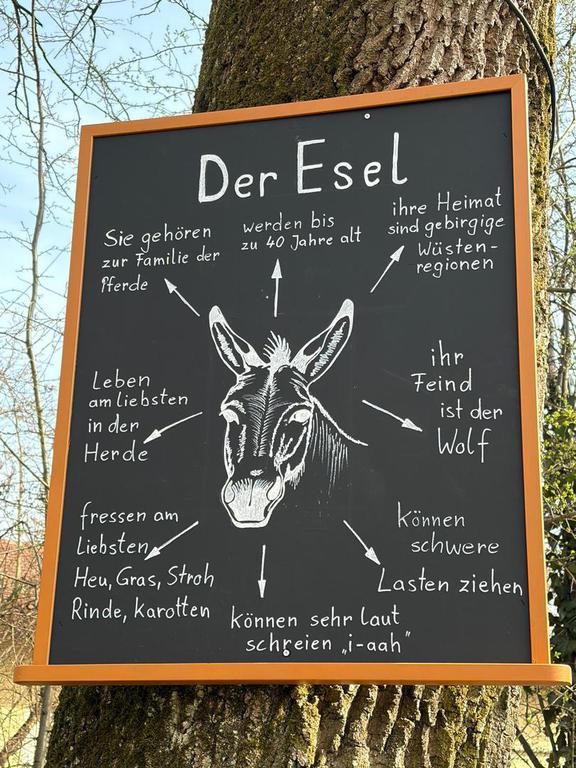 Der Esel
Sie gehören
zur Familie der
Pferde
werden bis
zu 40 Jahre alt
ihre Heimat
sind gebirgige
Wüsten-
regionen
Leben
am liebsten
in der
Herde
ihr
Feind
ist der
Wolf
fressen am
Liebsten
Heu, Gras, Stroh
Rinde, Karotten
können sehr laut
schreien „i-aah"
können
schwere
Lasten ziehen